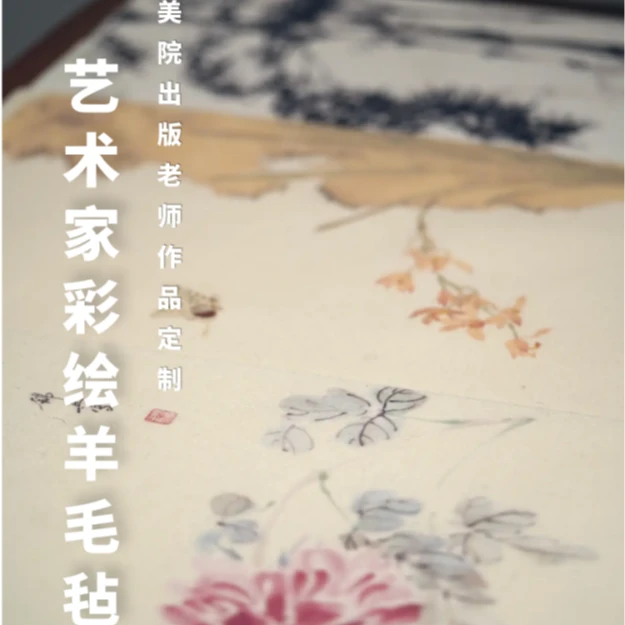 美院出版老师作品定制
艺术家彩绘羊毛毡